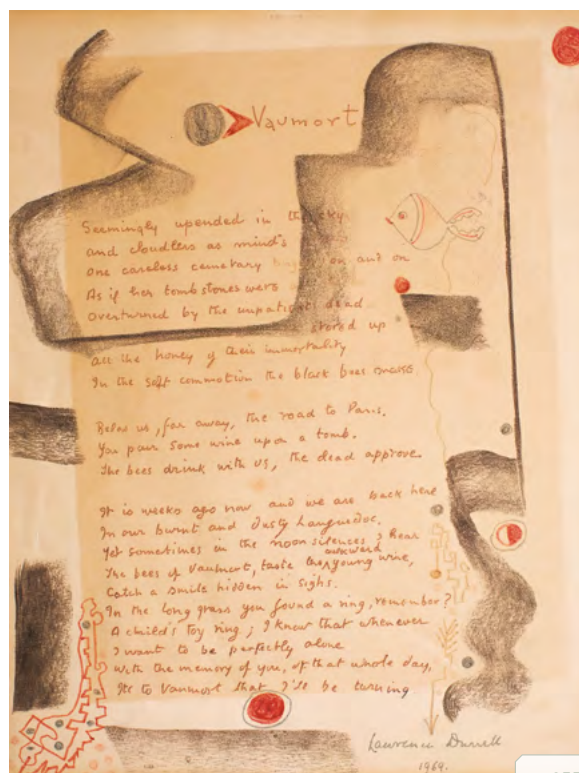 Vaumort
Seemingly upended in the sky
and cloudless as mind's
One careless cemetary on and on
As if her tombstones were
Overturned by the impatient dead
stored up
All the honey of their immortality
In the soft commotion the black bees make
Below us, far away, the road to Paris.
You pour some wine upon a tomb.
The bees drink with us, the dead approve.
It is weeks ago now and we are back here
In our burnt and dusty Languedoc,
Yet sometimes in the noon silences I hear
awkward
The bees of Vaumort, taste the young wine,
Catch a smile hidden in sighs.
In the long grass you found a ring, remember?
A child's toy ring; I know that whenever
I want to be perfectly alone
With the memory of you, of that whole day,
Its to Vaumort that I'll be turning
Lawrence Durrell
1969.